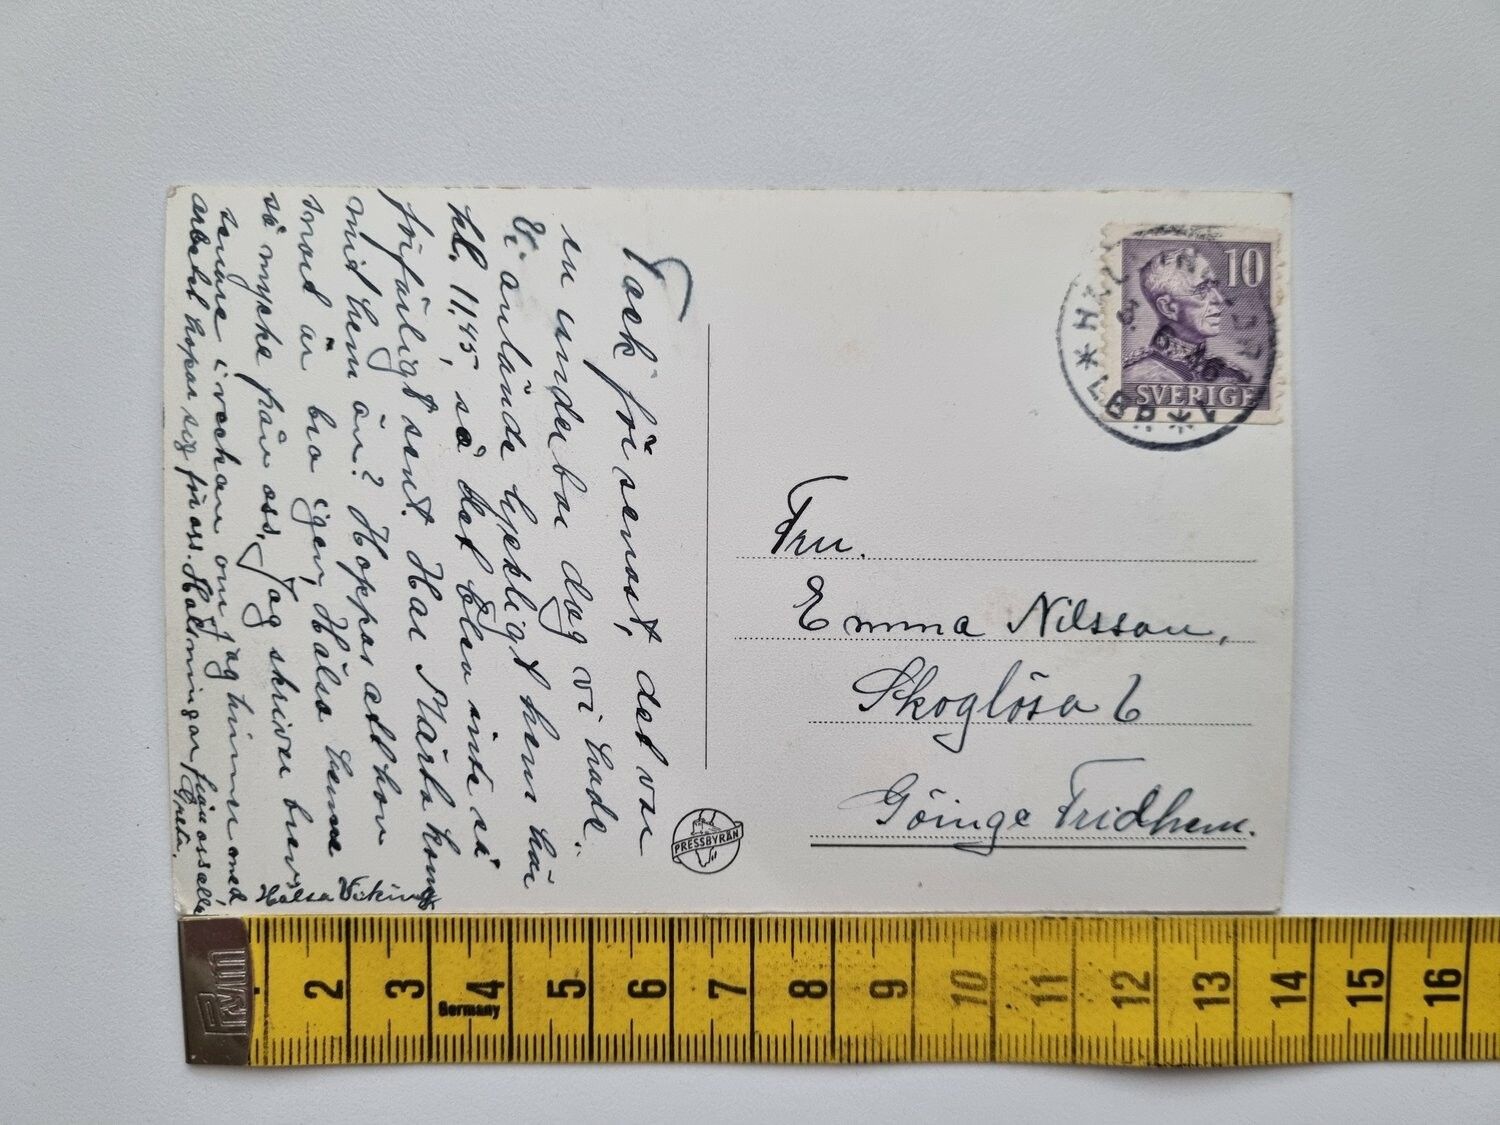 Tack för senast, det var
en underbar dag vi hade.
Vi anlände lyckligt hem här
kl. 11,45, så det blev inte så
förfärligt sent. Har Märta kommit
mit hem än? Hoppas att hon
snart är bra igen, Hälsa henne
så mycke från oss. Jag skriver brev
senare i veckan om jag hinner med
arbetet hopar sig för oss. Hälsningar från oss alla
Greta.
Hälsa Viking
PRESSBYRÅN
10
SVERIGE
LBR
Fru.
Emma Nilsson,
Skoglösa 6
Göinge Fridhem.
2 3 4 5 6 7 8 9 10 11 12 13 14 15 16
Germany